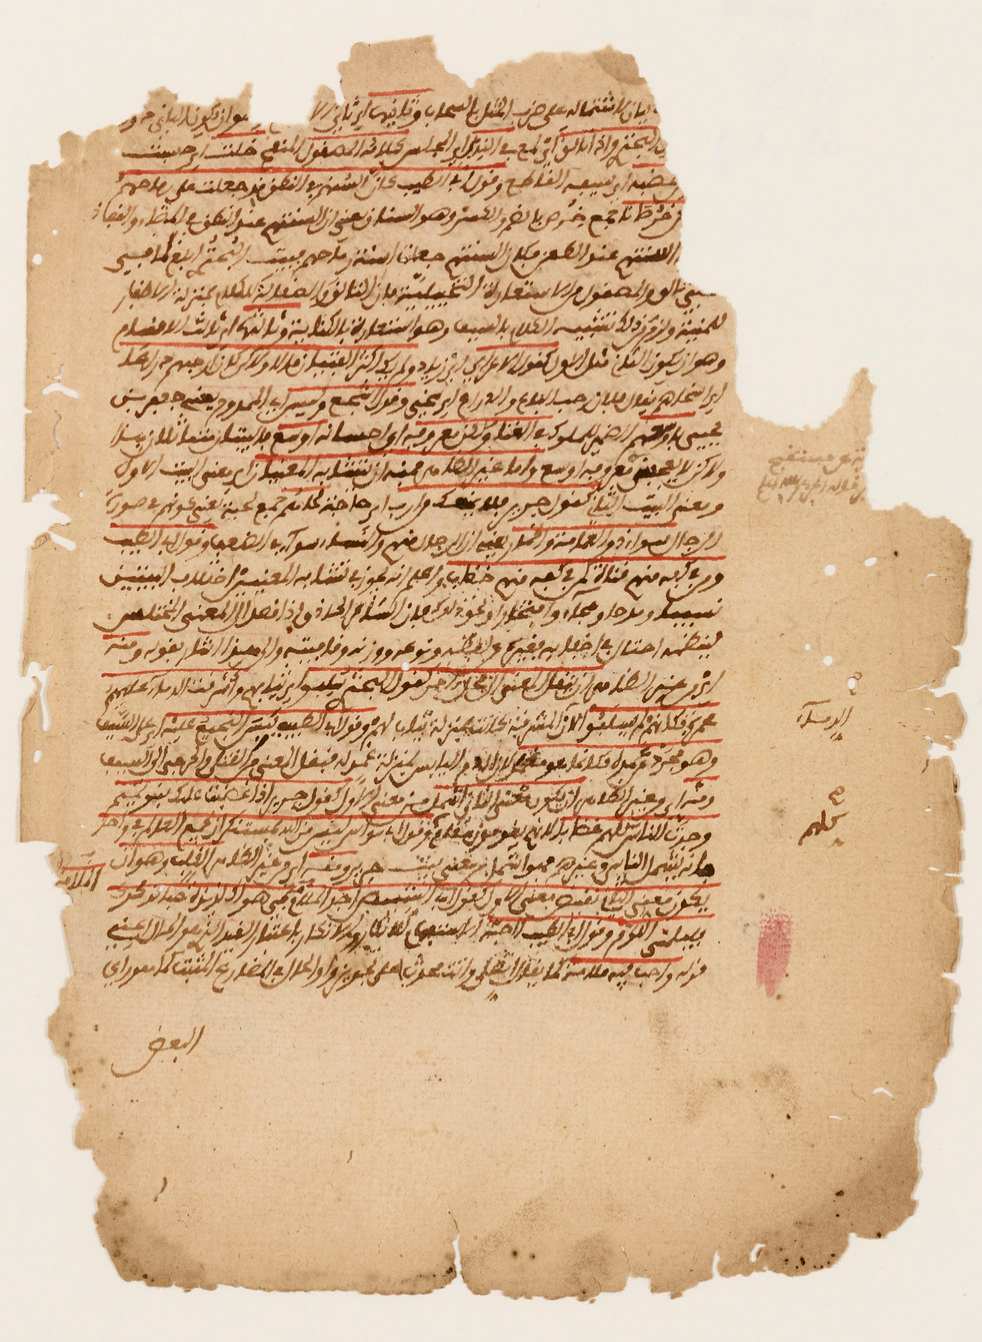 لاشتماله على وثانيها اي ثاني الا وهو ان يكون الثاني دو
البحتري واذا تالق اي لمع في الندي اي المجلس كلامه المصقول المنقح خلت اي حسبت
عضبه اي سيفه القاطع وقول ابي الطيب كان السنهم في النطق قد جعلت على رماحهم
خرصانا جمع خرص بالضم والكسر وهو السنان يعني ان السنتهم عند النطق في المضاء والنفاذ
السنتهم عند الطعن فكان السنتهم جعلت اسنة رماحهم فبيت البحتري ابلغ لما في
تالق والمصقول من الاستعارة التخييلية فان التالق والصقالة للكلام بمنزلة الاظفار
للمنية ولزم من ذلك تشبيه الكلام بالسيف وهو استعارة بالكناية وثالثها اي ثالث الاقسام
وهو ان يكون الثاني مثل الاول كقول الاعرابي ابي زياد ولم يك اكثر الفتيان مالا ولكن كان ارحبهم ذراعا
اي اسخاهم يقال فلان رحب الباع والذراع اي سخي وقول اشجع وليس اي الممدوح يعني جعفر بن
يحيى باوسعهم الضمير للملوك في الغنى ولكن معروفه اي احسانه اوسع فالبيتان متماثلان هذا
ولكن لا يعجبني معروفه اوسع واما غير الظاهر فمنه ان يتشابه المعنيان اي معنى البيت الاول
ومعنى البيت الثاني كقول جرير فلا يمنعك من ارب اي حاجة لحاهم جمع لحية يعني كونهم في صورة
الرجال سواء ذو العمامة والخمار يعني ان الرجال منهم والنساء سواء في الضعف وقول ابي الطيب
ومن في كفه منهم قناة كمن في كفه منهم خضاب واعلم انه يجوز في تشابه المعنيين اختلاف البيتين
نسيبا ومديحا وهجاء وافتخارا ونحو ذلك فان الشاعر الحاذق اذا قصد الى المعنى المختلس
لينظمه احتال في اخفائه فغيره عن لفظه ونوعه ووزنه وقافيته والى هذا اشار بقوله ومنه
اي من غير الظاهر ان ينقل المعنى الى محل اخر كقول البحتري سلبوا اي ثيابهم واشرقت الدماء عليهم
محمرة فكانهم لم يسلبوا لان المشرقة كانت بمنزلة ثياب لهم وقول ابي الطيب يبس النجيع عليه اي على السيف
وهو مجرد من غمده فكانما هو مغمد لان الدم اليابس بمنزلة غمد له فنقل المعنى من القتلى والجرحى الى السيف
ومنه اي من غير الظاهر ان يكون معنى الثاني اشمل من معنى الاول كقول جرير اذا غضبت عليك بنو تميم
وجدت الناس كلهم غضابا لانهم يقومون مقام وقول ابي نواس ليس من الله بمستنكر ان يجمع العالم في واحد
فانه يشمل الناس وغيرهم فهو اشمل من معنى بيت جرير ومنه اي من غير الظاهر القلب وهو ان
يكون معنى الثاني نقيض معنى الاول كقول ابي الشيص اجد الملامة في هواك لذيذة حبا لذكرك
فليلمني اللوم وقول ابي الطيب ااحبه الاستفهام للانكار والانكار باعتبار القيد الذي هو الحال اعني
قوله واحب فيه ملامة كما يقال اتصلي وانت محدث على تجويز واو الحال في المضارع المثبت كما هو راي
البعض
الدماء
كلهم
الملامة